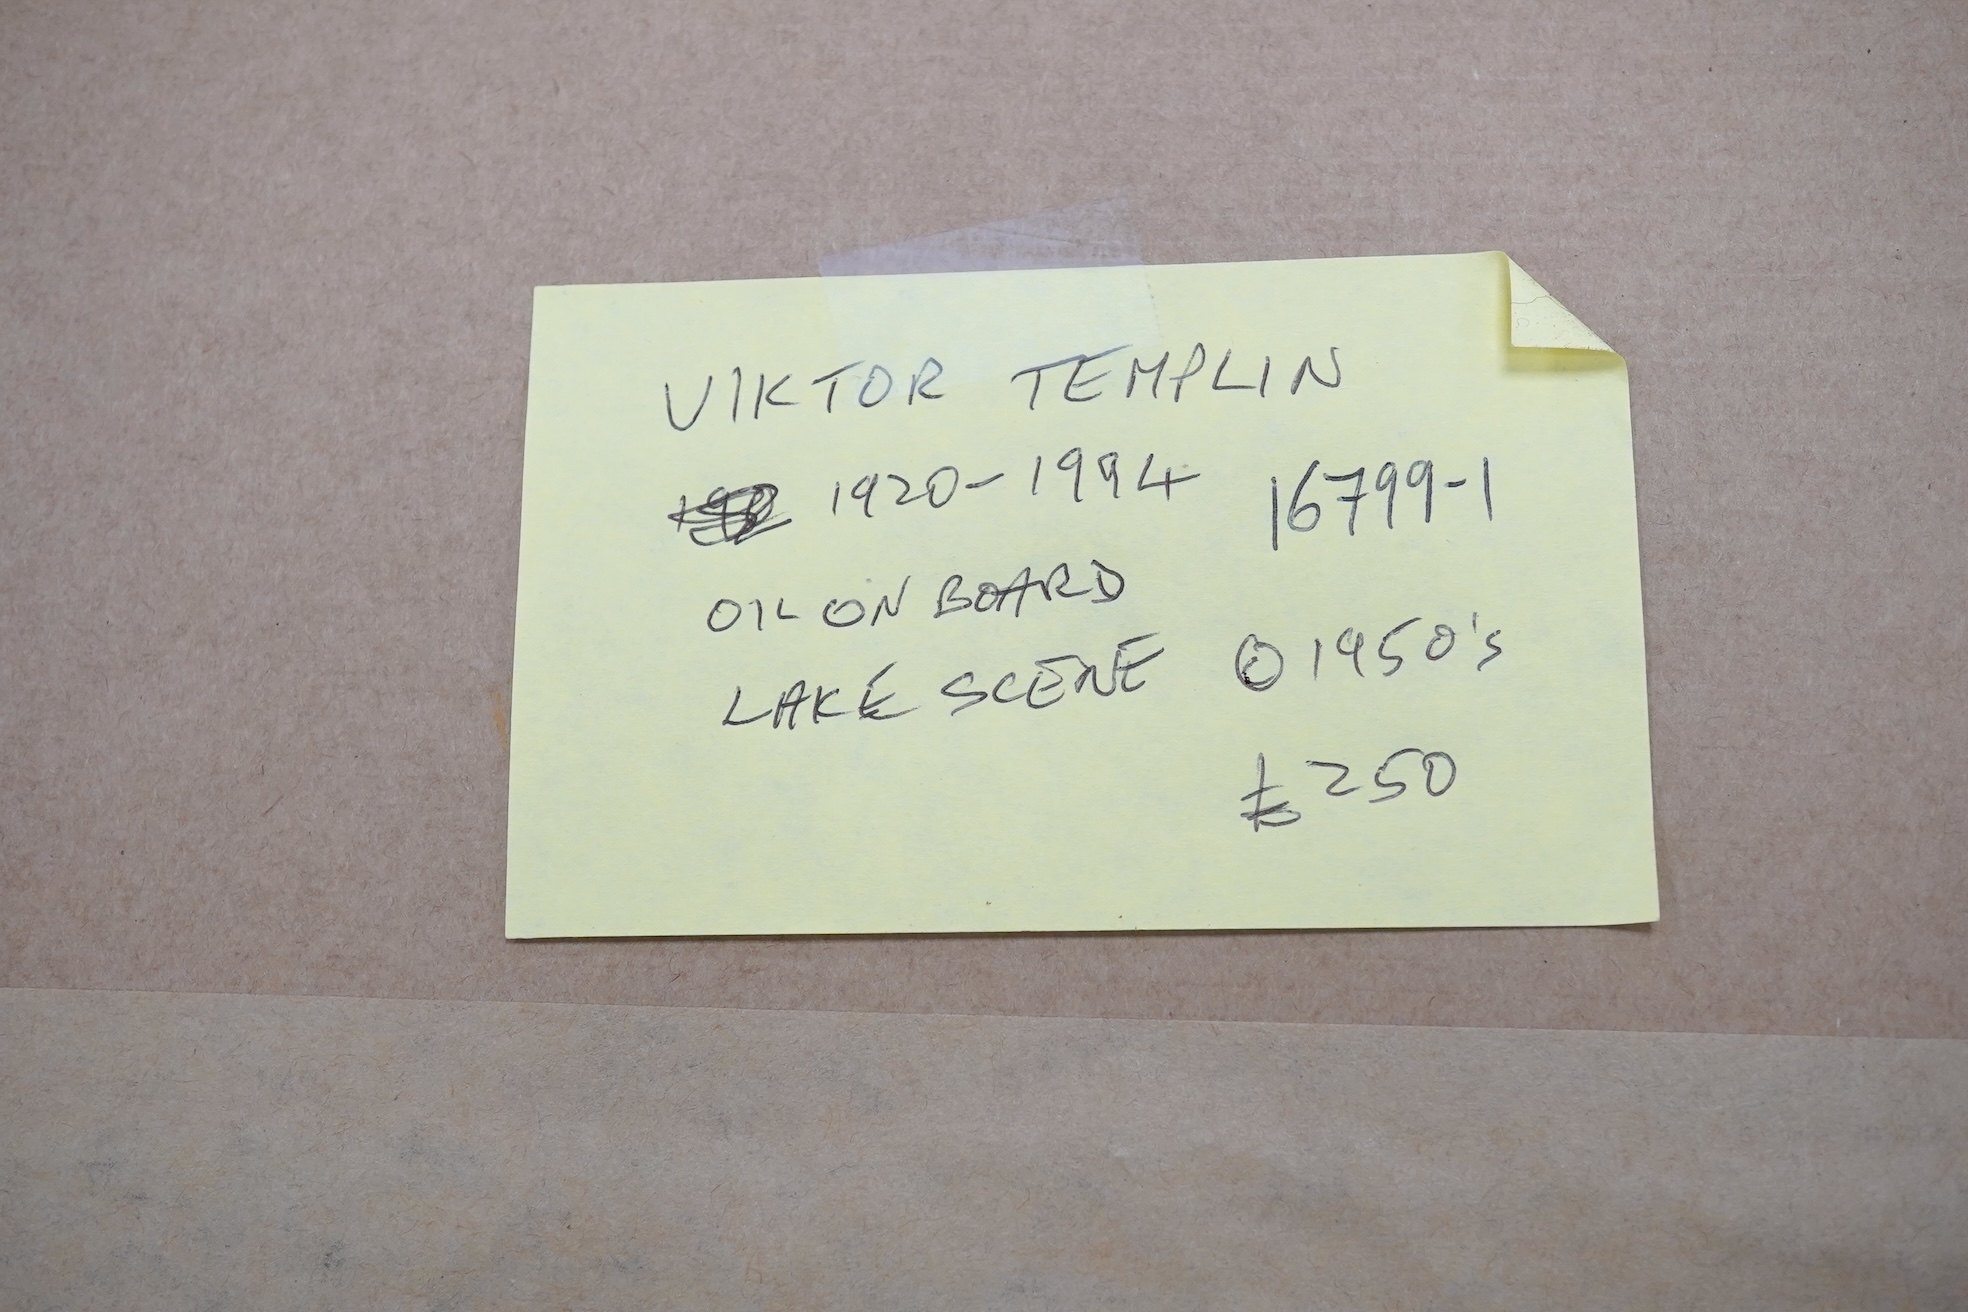 VIKTOR TEMPLIN
1920-1994 16799-1
OIL ON BOARD
LAKE SCENE © 1950's
£250